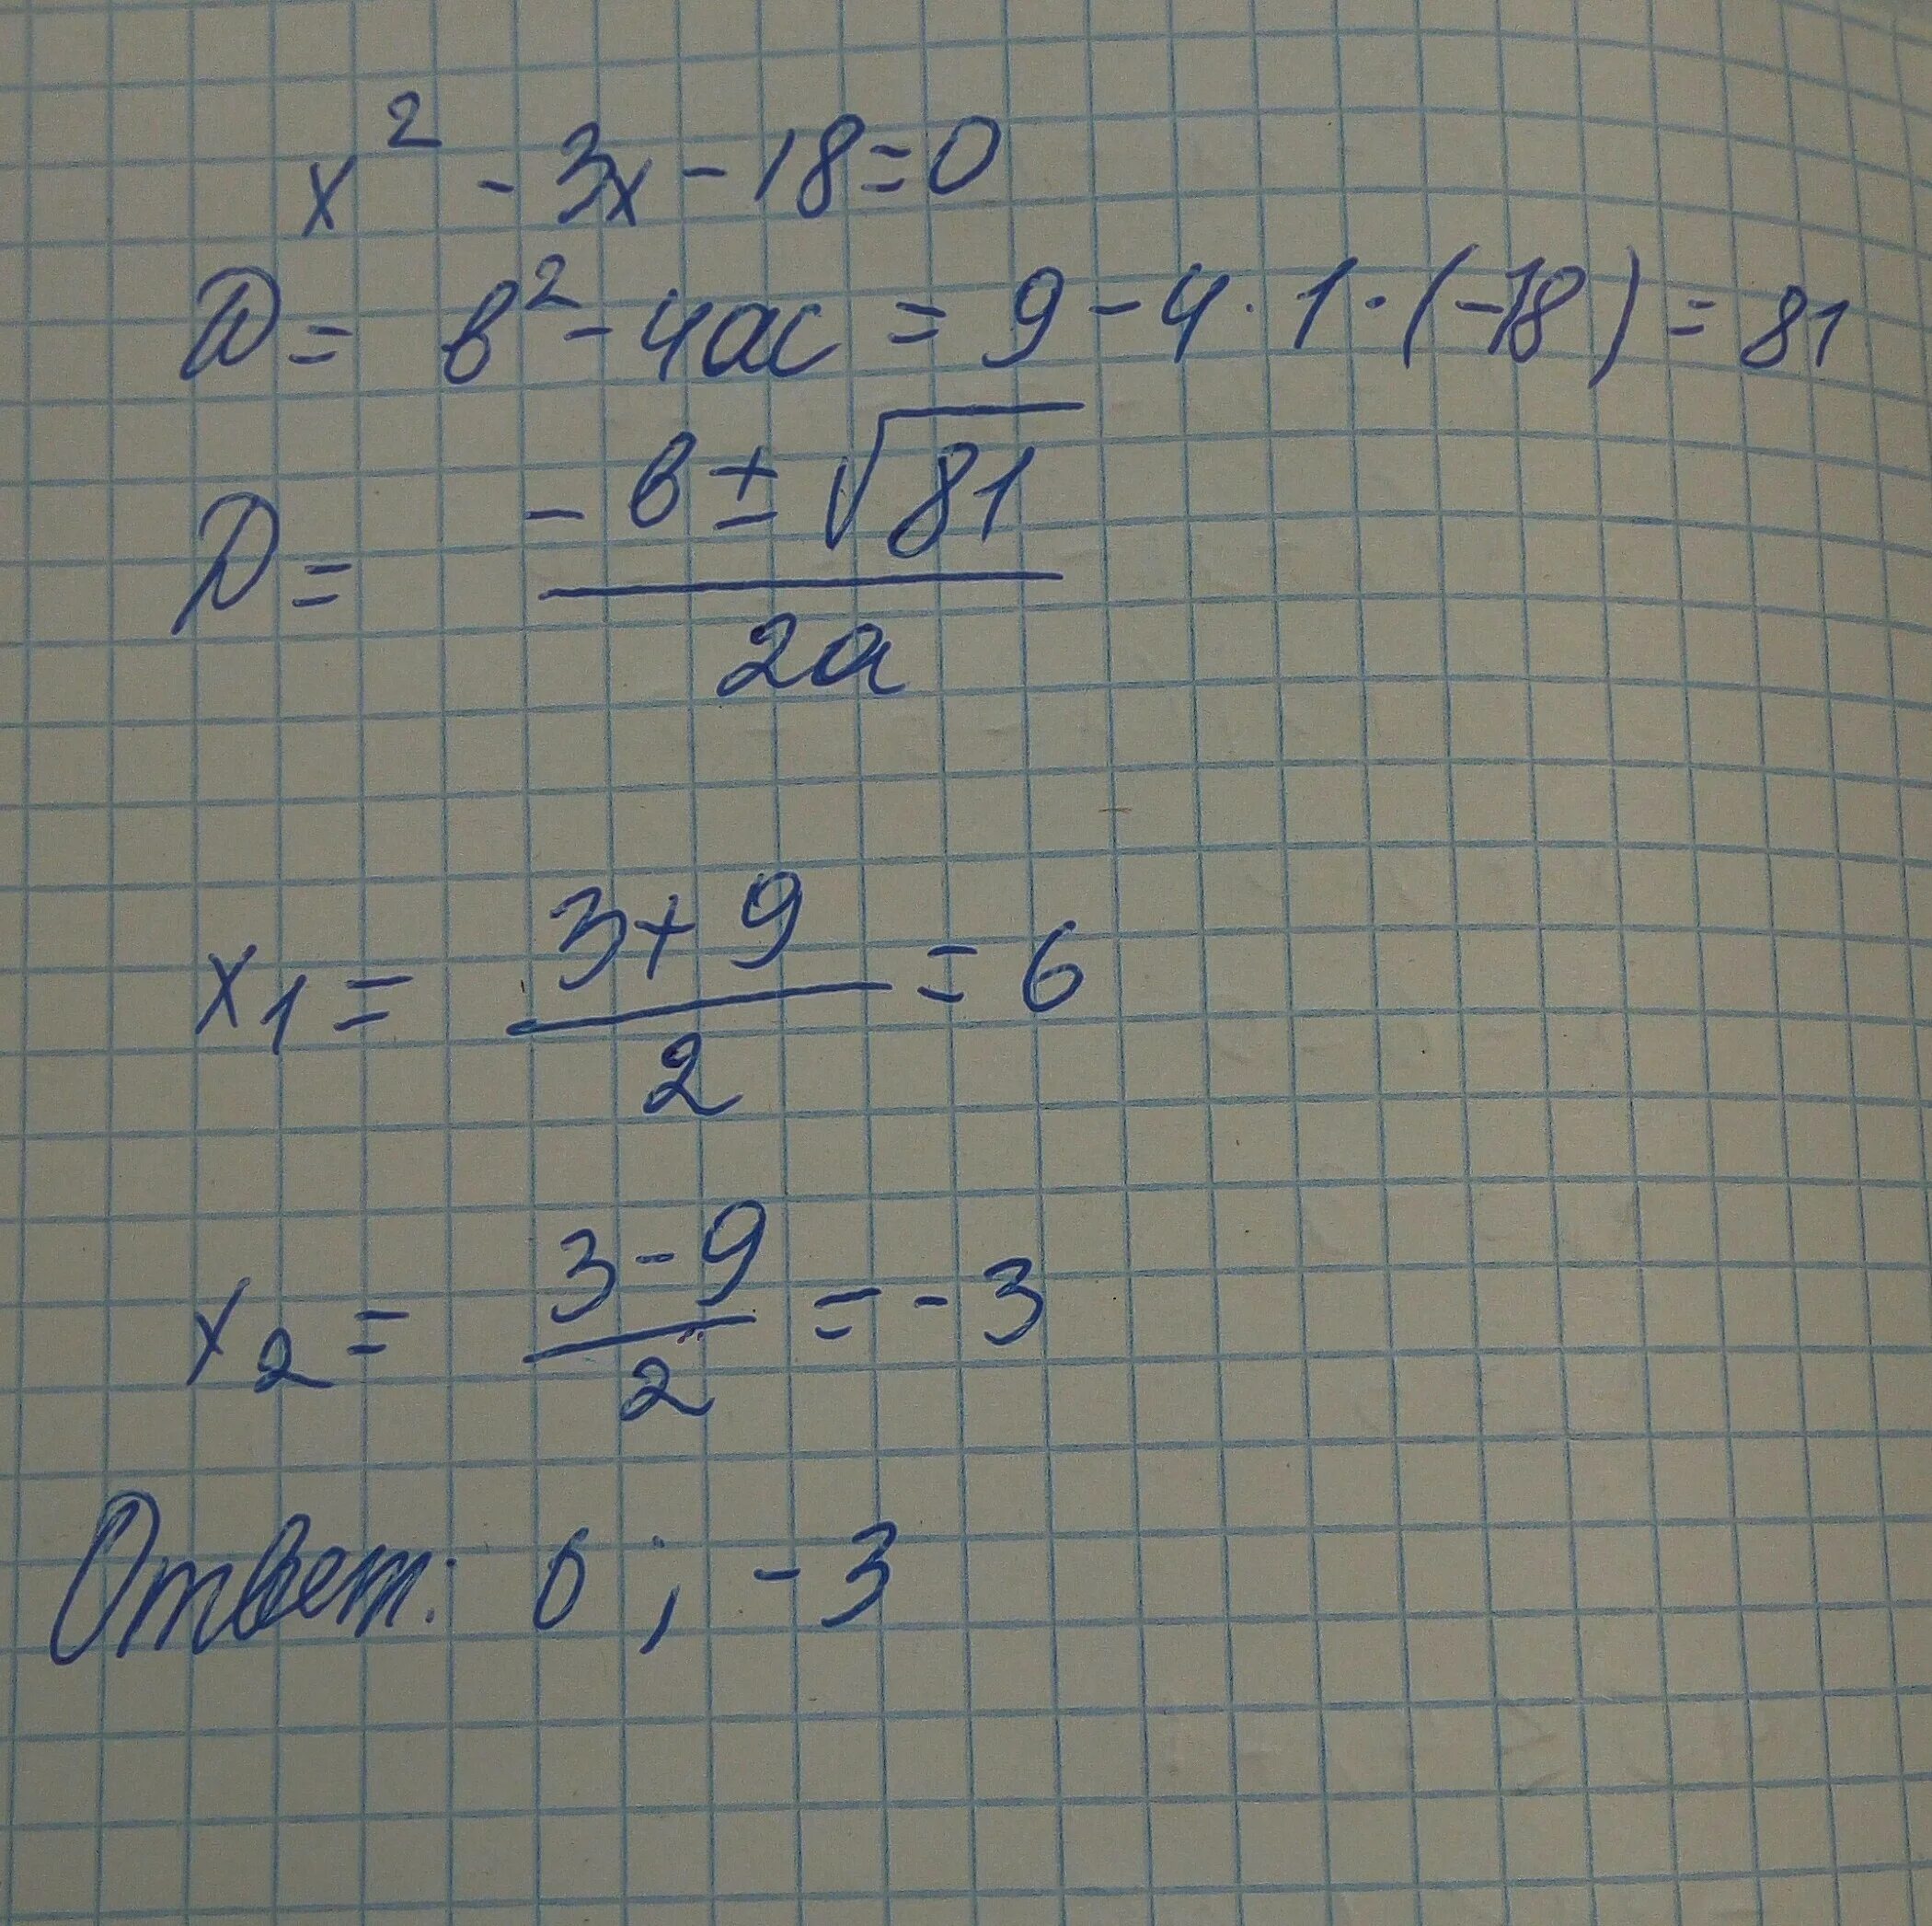 x² - 3x - 18 = 0
D = в² - 4ac = 9 - 4 · 1 · (-18) = 81
D = (-в ± √81) / 2a
x₁ = (3 + 9) / 2 = 6
x₂ = (3 - 9) / 2 = -3
Ответ: 6 ; -3